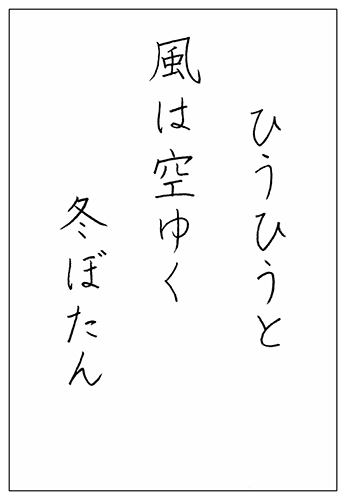 ひうひうと
風は空ゆく
冬ぼたん